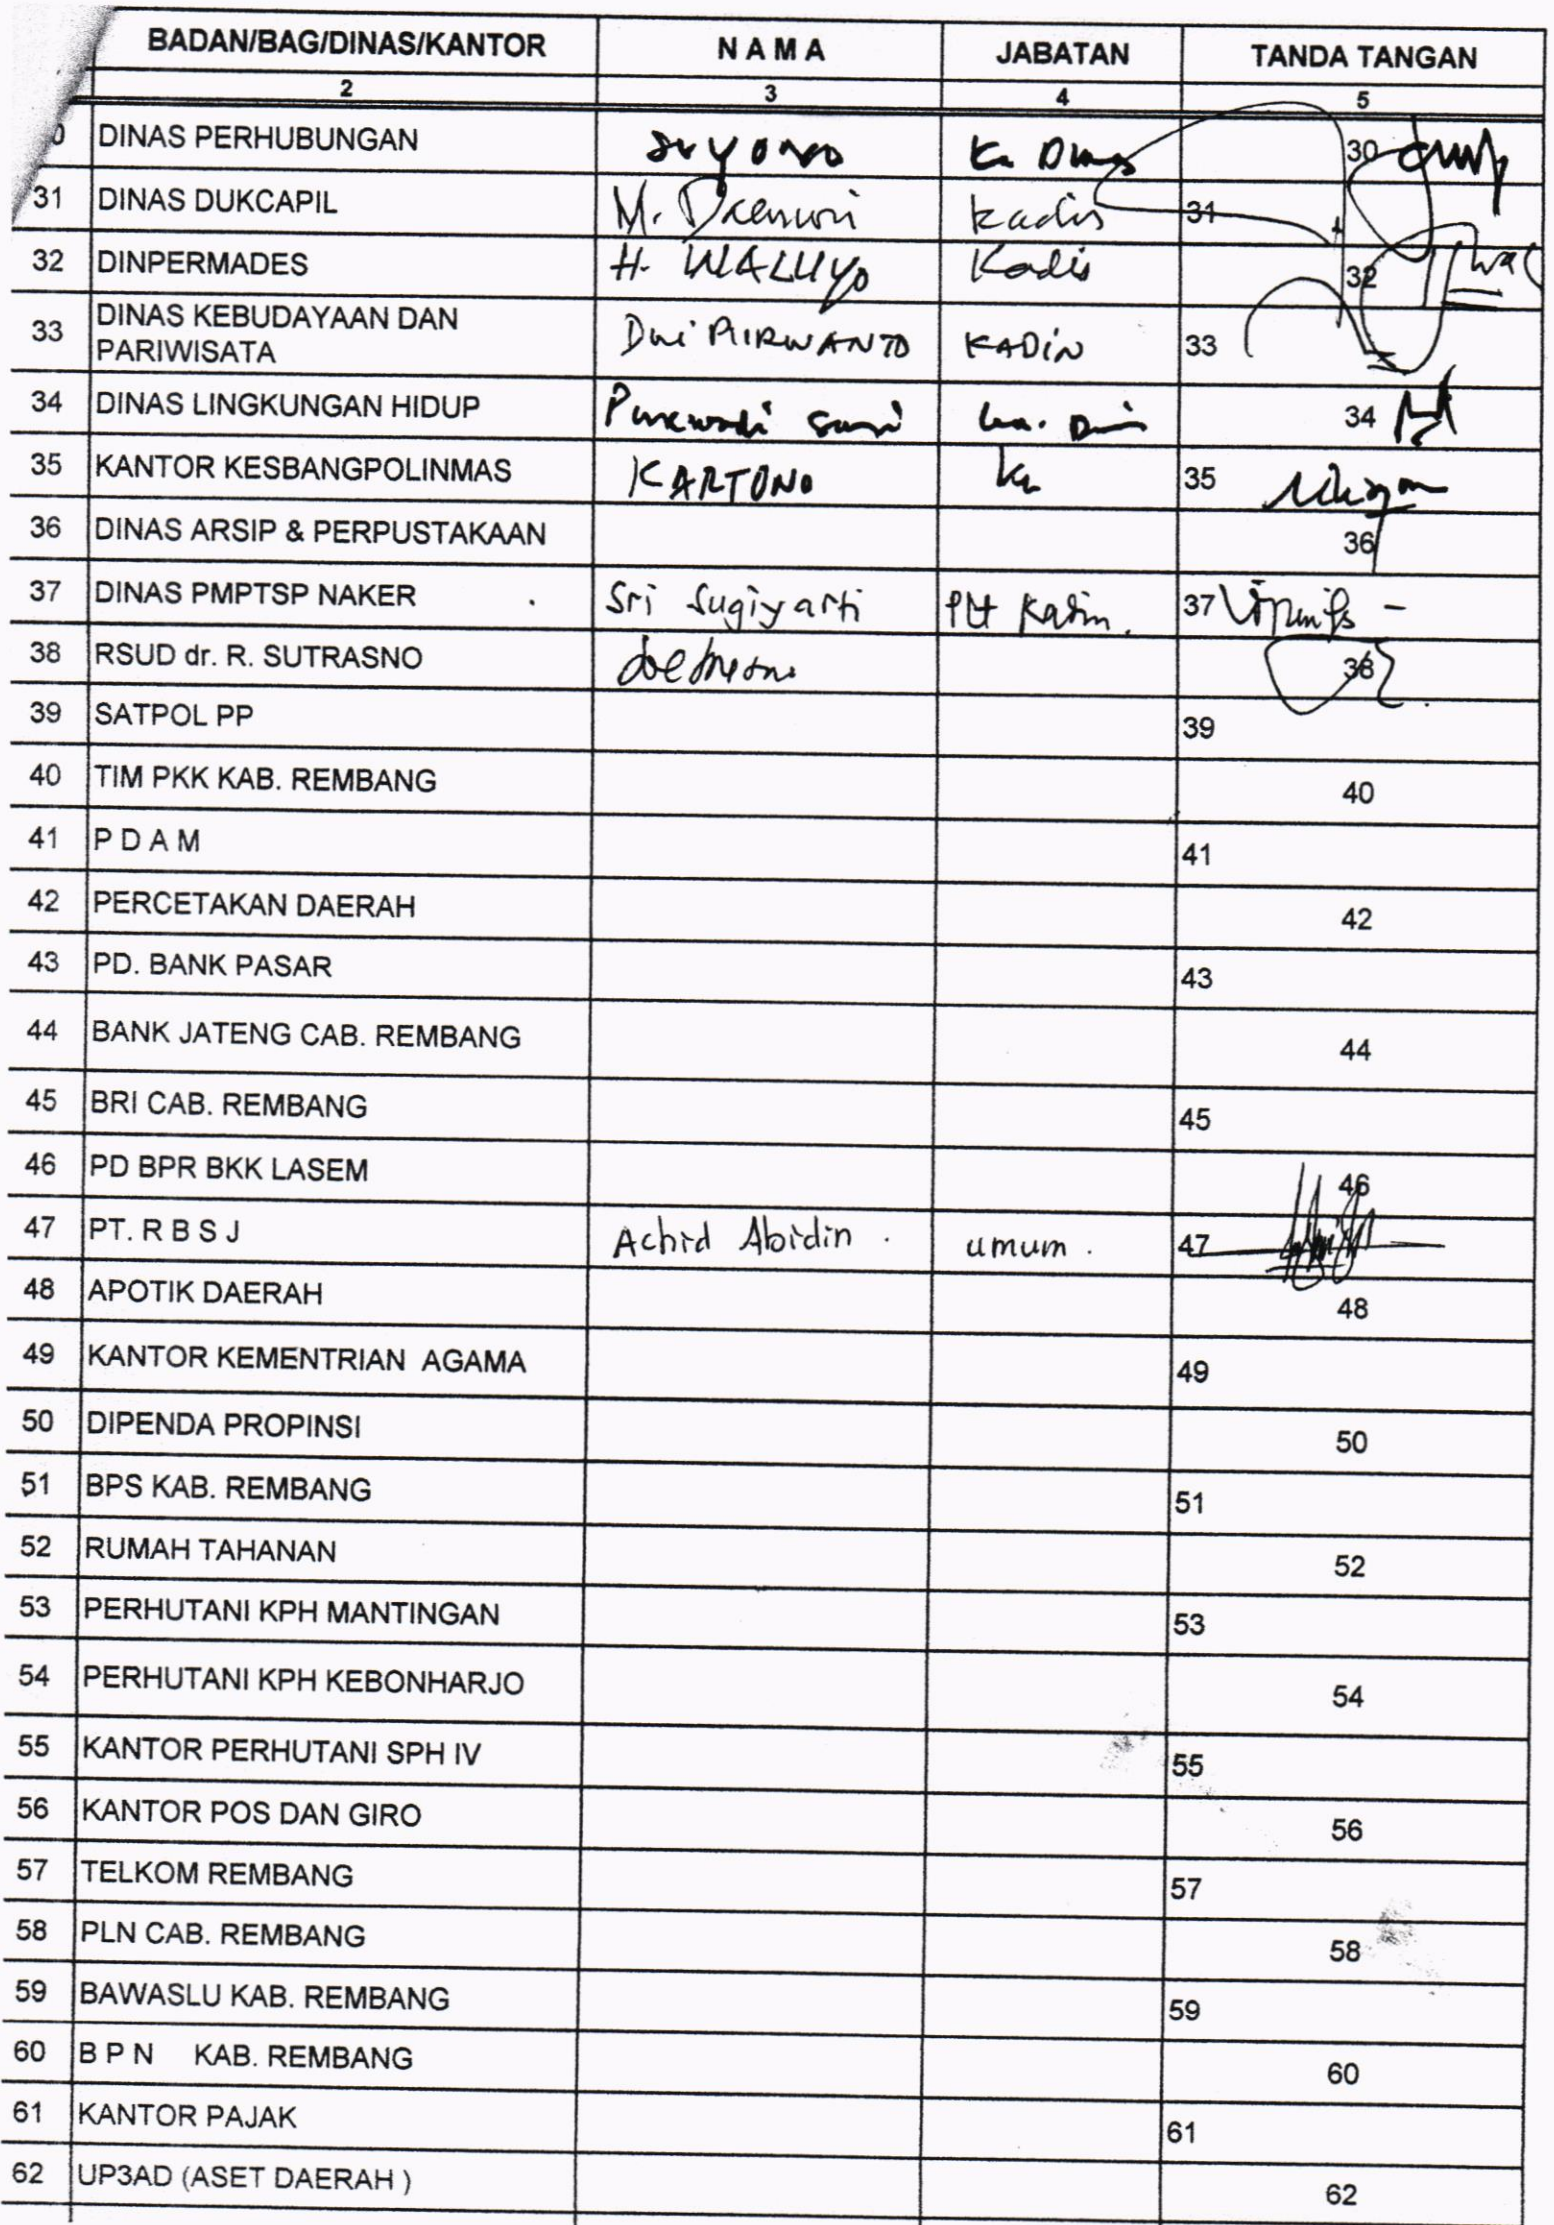 BADAN/BAG/DINAS/KANTOR NAMA JABATAN TANDA TANGAN
2 3 4 5
0 DINAS PERHUBUNGAN SUYONO Ka Dinas 30
31 DINAS DUKCAPIL M. Kadis 31
32 DINPERMADES H. WALUYO Kadis 32
33 DINAS KEBUDAYAAN DAN PARIWISATA Dwi PURWANTO KADIN 33
34 DINAS LINGKUNGAN HIDUP Purwadi Ka. 34
35 KANTOR KESBANGPOLINMAS KARTONO Ka 35
36 DINAS ARSIP & PERPUSTAKAAN 36
37 DINAS PMPTSP NAKER Sri Sugiyarti Plt Kadin. 37
38 RSUD dr. R. SUTRASNO 38
39 SATPOL PP 39
40 TIM PKK KAB. REMBANG 40
41 P D A M 41
42 PERCETAKAN DAERAH 42
43 PD. BANK PASAR 43
44 BANK JATENG CAB. REMBANG 44
45 BRI CAB. REMBANG 45
46 PD BPR BKK LASEM 46
47 PT. R B S J Achid Abidin. umum. 47
48 APOTIK DAERAH 48
49 KANTOR KEMENTRIAN AGAMA 49
50 DIPENDA PROPINSI 50
51 BPS KAB. REMBANG 51
52 RUMAH TAHANAN 52
53 PERHUTANI KPH MANTINGAN 53
54 PERHUTANI KPH KEBONHARJO 54
55 KANTOR PERHUTANI SPH IV 55
56 KANTOR POS DAN GIRO 56
57 TELKOM REMBANG 57
58 PLN CAB. REMBANG 58
59 BAWASLU KAB. REMBANG 59
60 B P N KAB. REMBANG 60
61 KANTOR PAJAK 61
62 UP3AD (ASET DAERAH ) 62